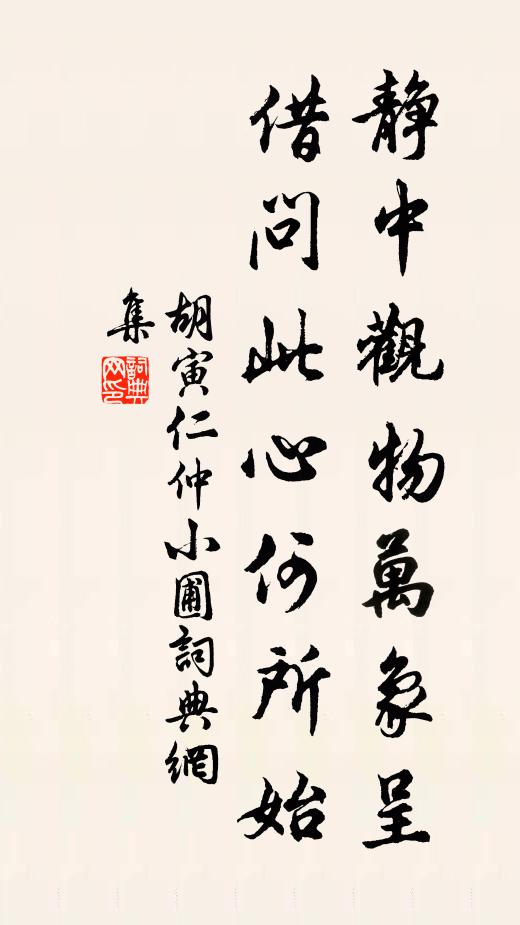 静中觀物萬象呈
借問此心何所始
胡寅仁仲小圃詞典網
集
詞典
网印